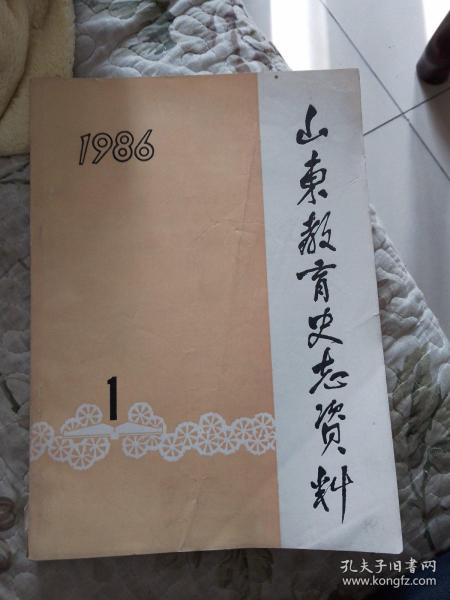 1986
山东教育史志资料
1
孔夫子旧书网
www.kongfz.com